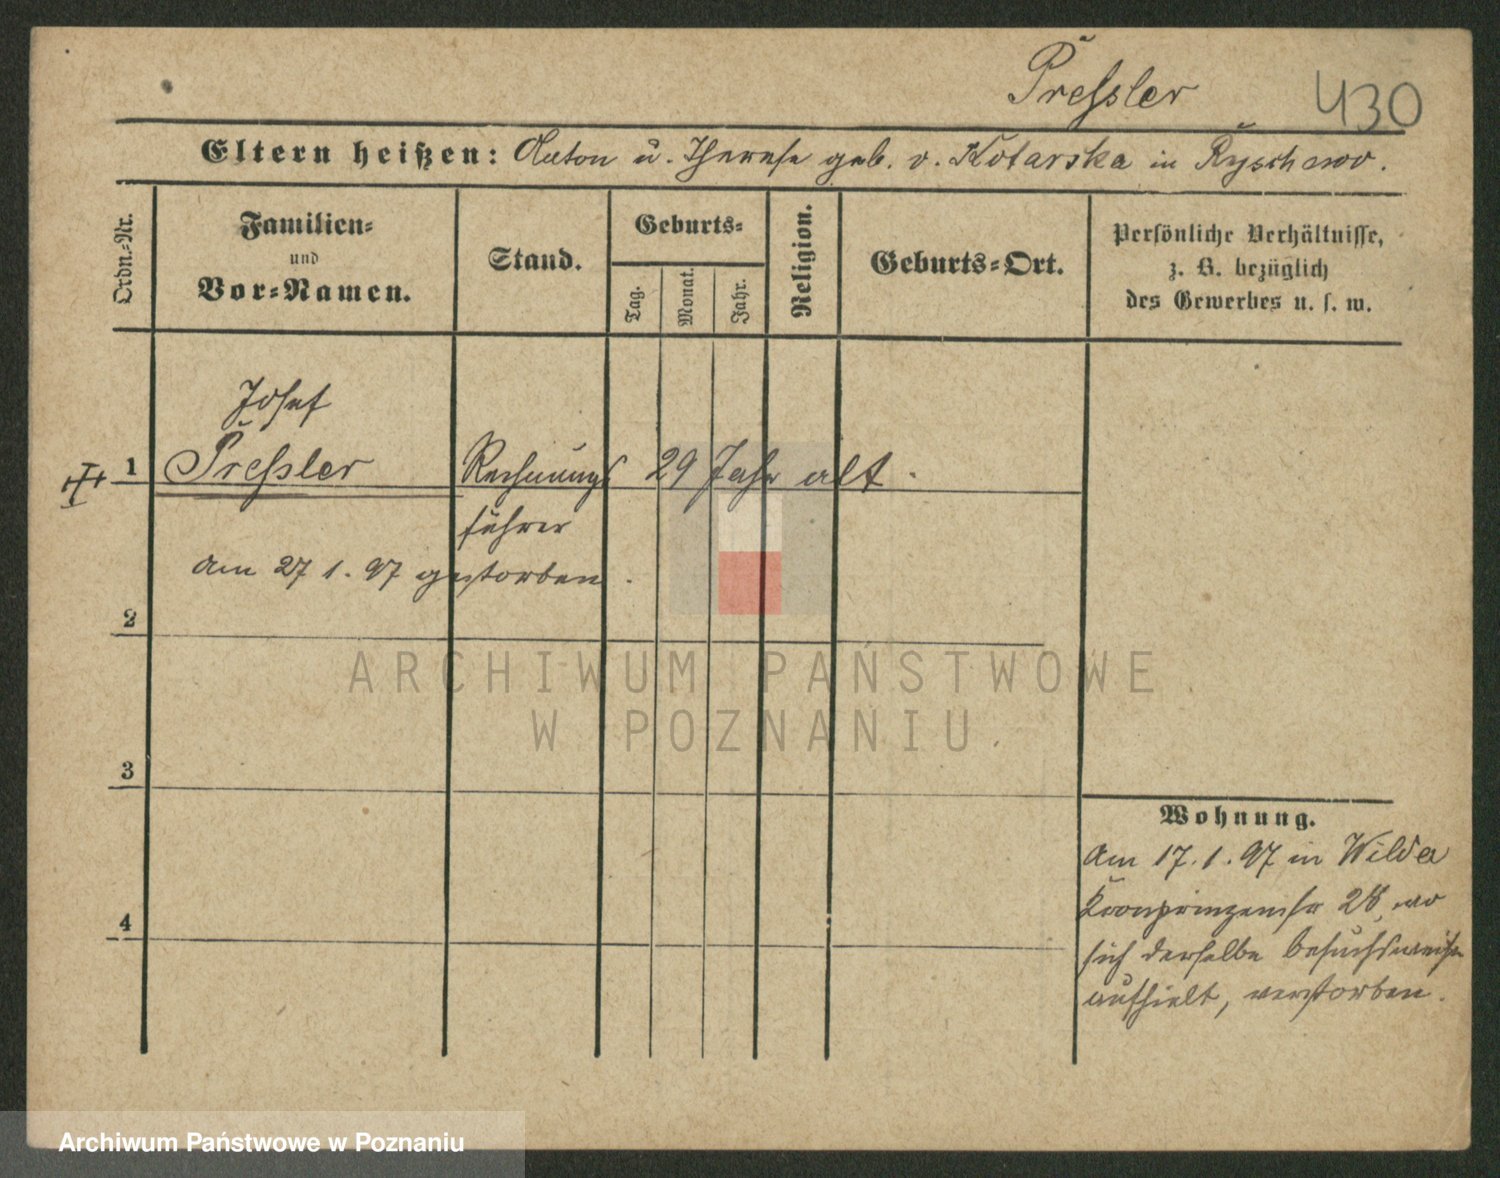 Preſsler 430
Eltern heißen: Anton u. Therese geb. v. Kotarska in Ryschewo.
Ordn.-Nr.
Familien-
und
Vor-Namen.
Stand.
Geburts-
Tag.
Monat.
Jahr.
Religion.
Geburts-Ort.
Persönliche Verhältnisse,
z. B. bezüglich
des Gewerbes u. s. w.
Josef
1 Preſsler Rechnungs 29 Jahr alt.
führer
am 27 1. 97 gestorben.
2
3
4
Wohnung.
Am 17. 1. 97 in Wilda
Kronprinzenstr 28, wo
sich derselbe besuchsweise
aufhielt, verstorben.
ARCHIWUM PAŃSTWOWE
W POZNANIU
Archiwum Państwowe w Poznaniu